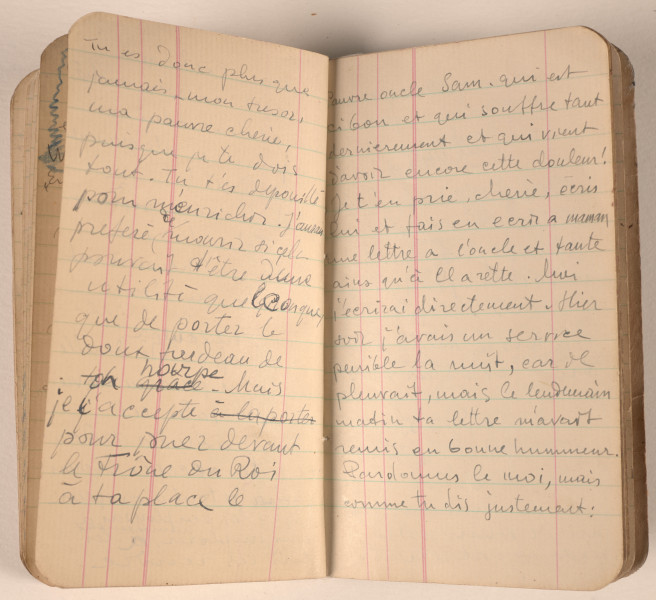 Tu es donc plus que
jamais mon tresor,
ma pauvre cherie,
puisque je te dois
tout. Tu t'es depouillé
pour m'enrichir. J'aurais
préféré mourir si cela
pouvait t'être d'une
utilité quelconque,
que de porter le
doux fardeau de
ton hourpe. Mais
je l'accepte à la porter
pour jouer devant
le Trône du Roi
à ta place le
Pauvre oncle Sam. qui est
si bon et qui souffre tant
dernierement et qui vient
d'avoir encore cette douleur!
Je t'en prie, cherie, ecris
lui et fais en ecrir a maman
une lettre a l'oncle et tante
ainsi qu'à Clarette. Moi
j'ecrirai directement. Hier
soir j'avais un service
penible la nuit, car il
pleuvait, mais le lendemain
matin ta lettre m'avait
remis en bonne humeur.
Pardonnes le moi, mais
comme tu dis justement: